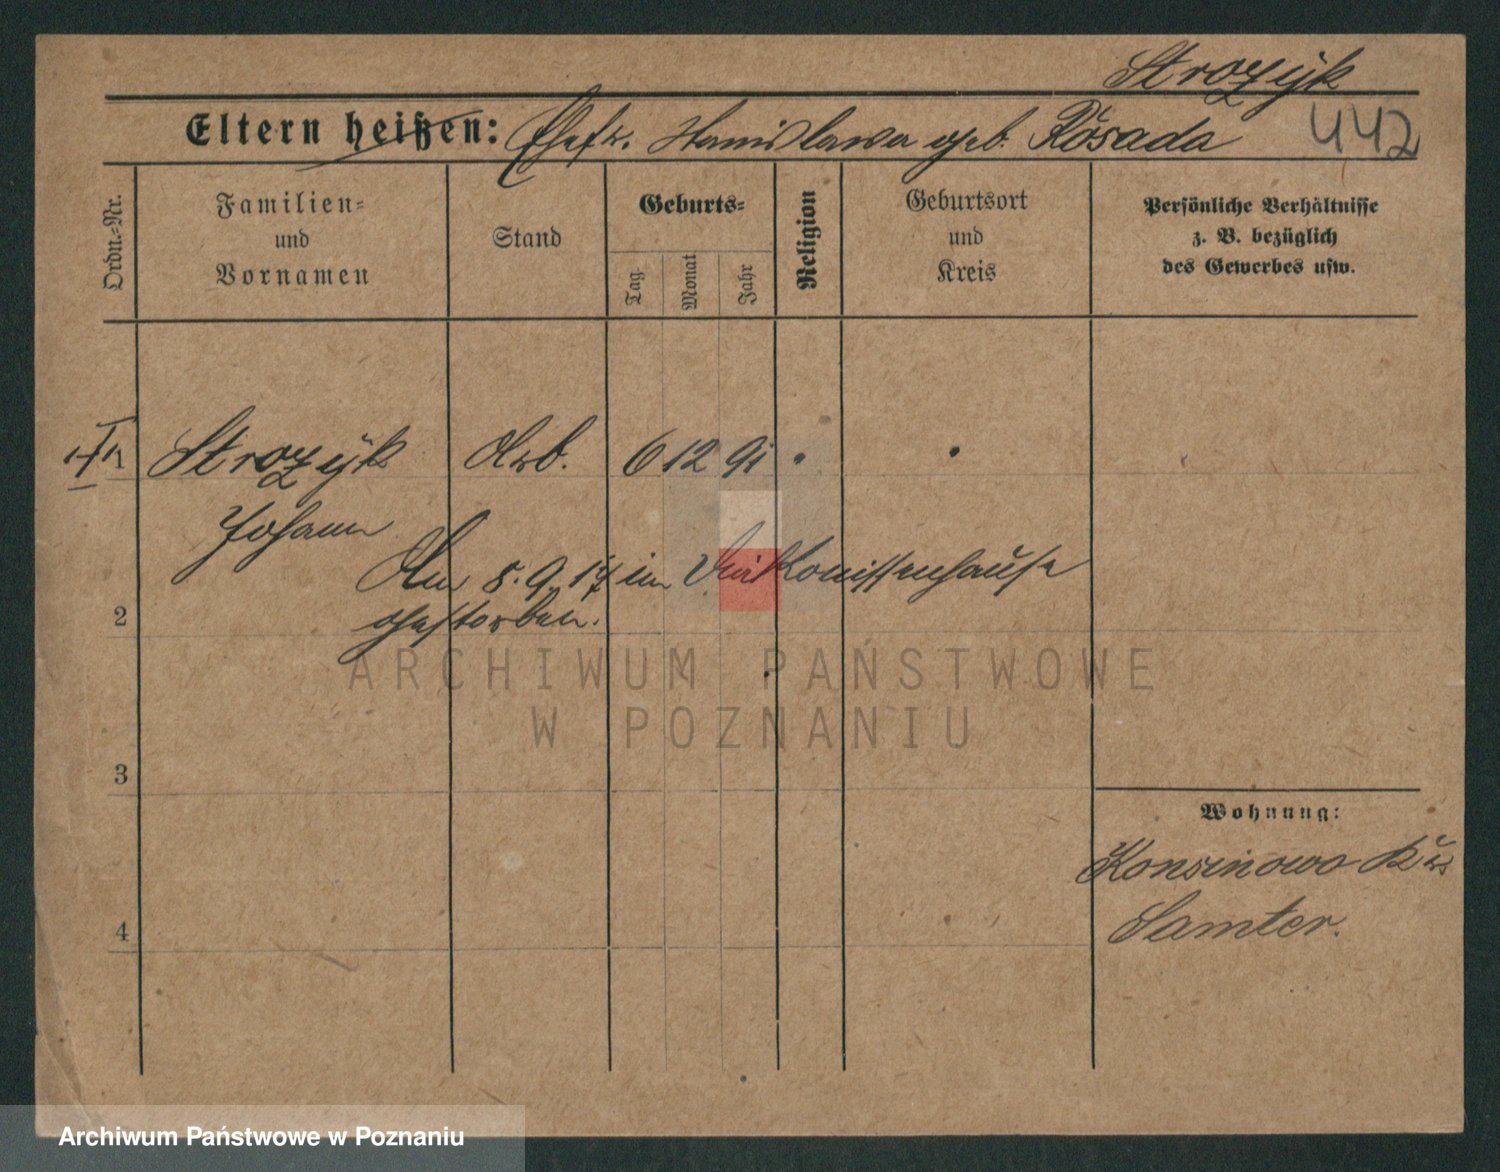 Strozyk
Eltern heißen: Ehefr. Stanislawa geb. Rosada 442
Ordn.-Nr.
Familien-
und
Vornamen
Stand
Geburts-
Tag
Monat
Jahr
Religion
Geburtsort
und
Kreis
Persönliche Verhältnisse
z. B. bezüglich
des Gewerbes usw.
Strozyk Arb. 6 12 91
Johann
Am 8. 9. 17 im Diakonissenhause
gestorben.
2
3
4
ARCHIWUM PAŃSTWOWE
W POZNANIU
Wohnung:
Konsinowo
Samter.
Archiwum Państwowe w Poznaniu